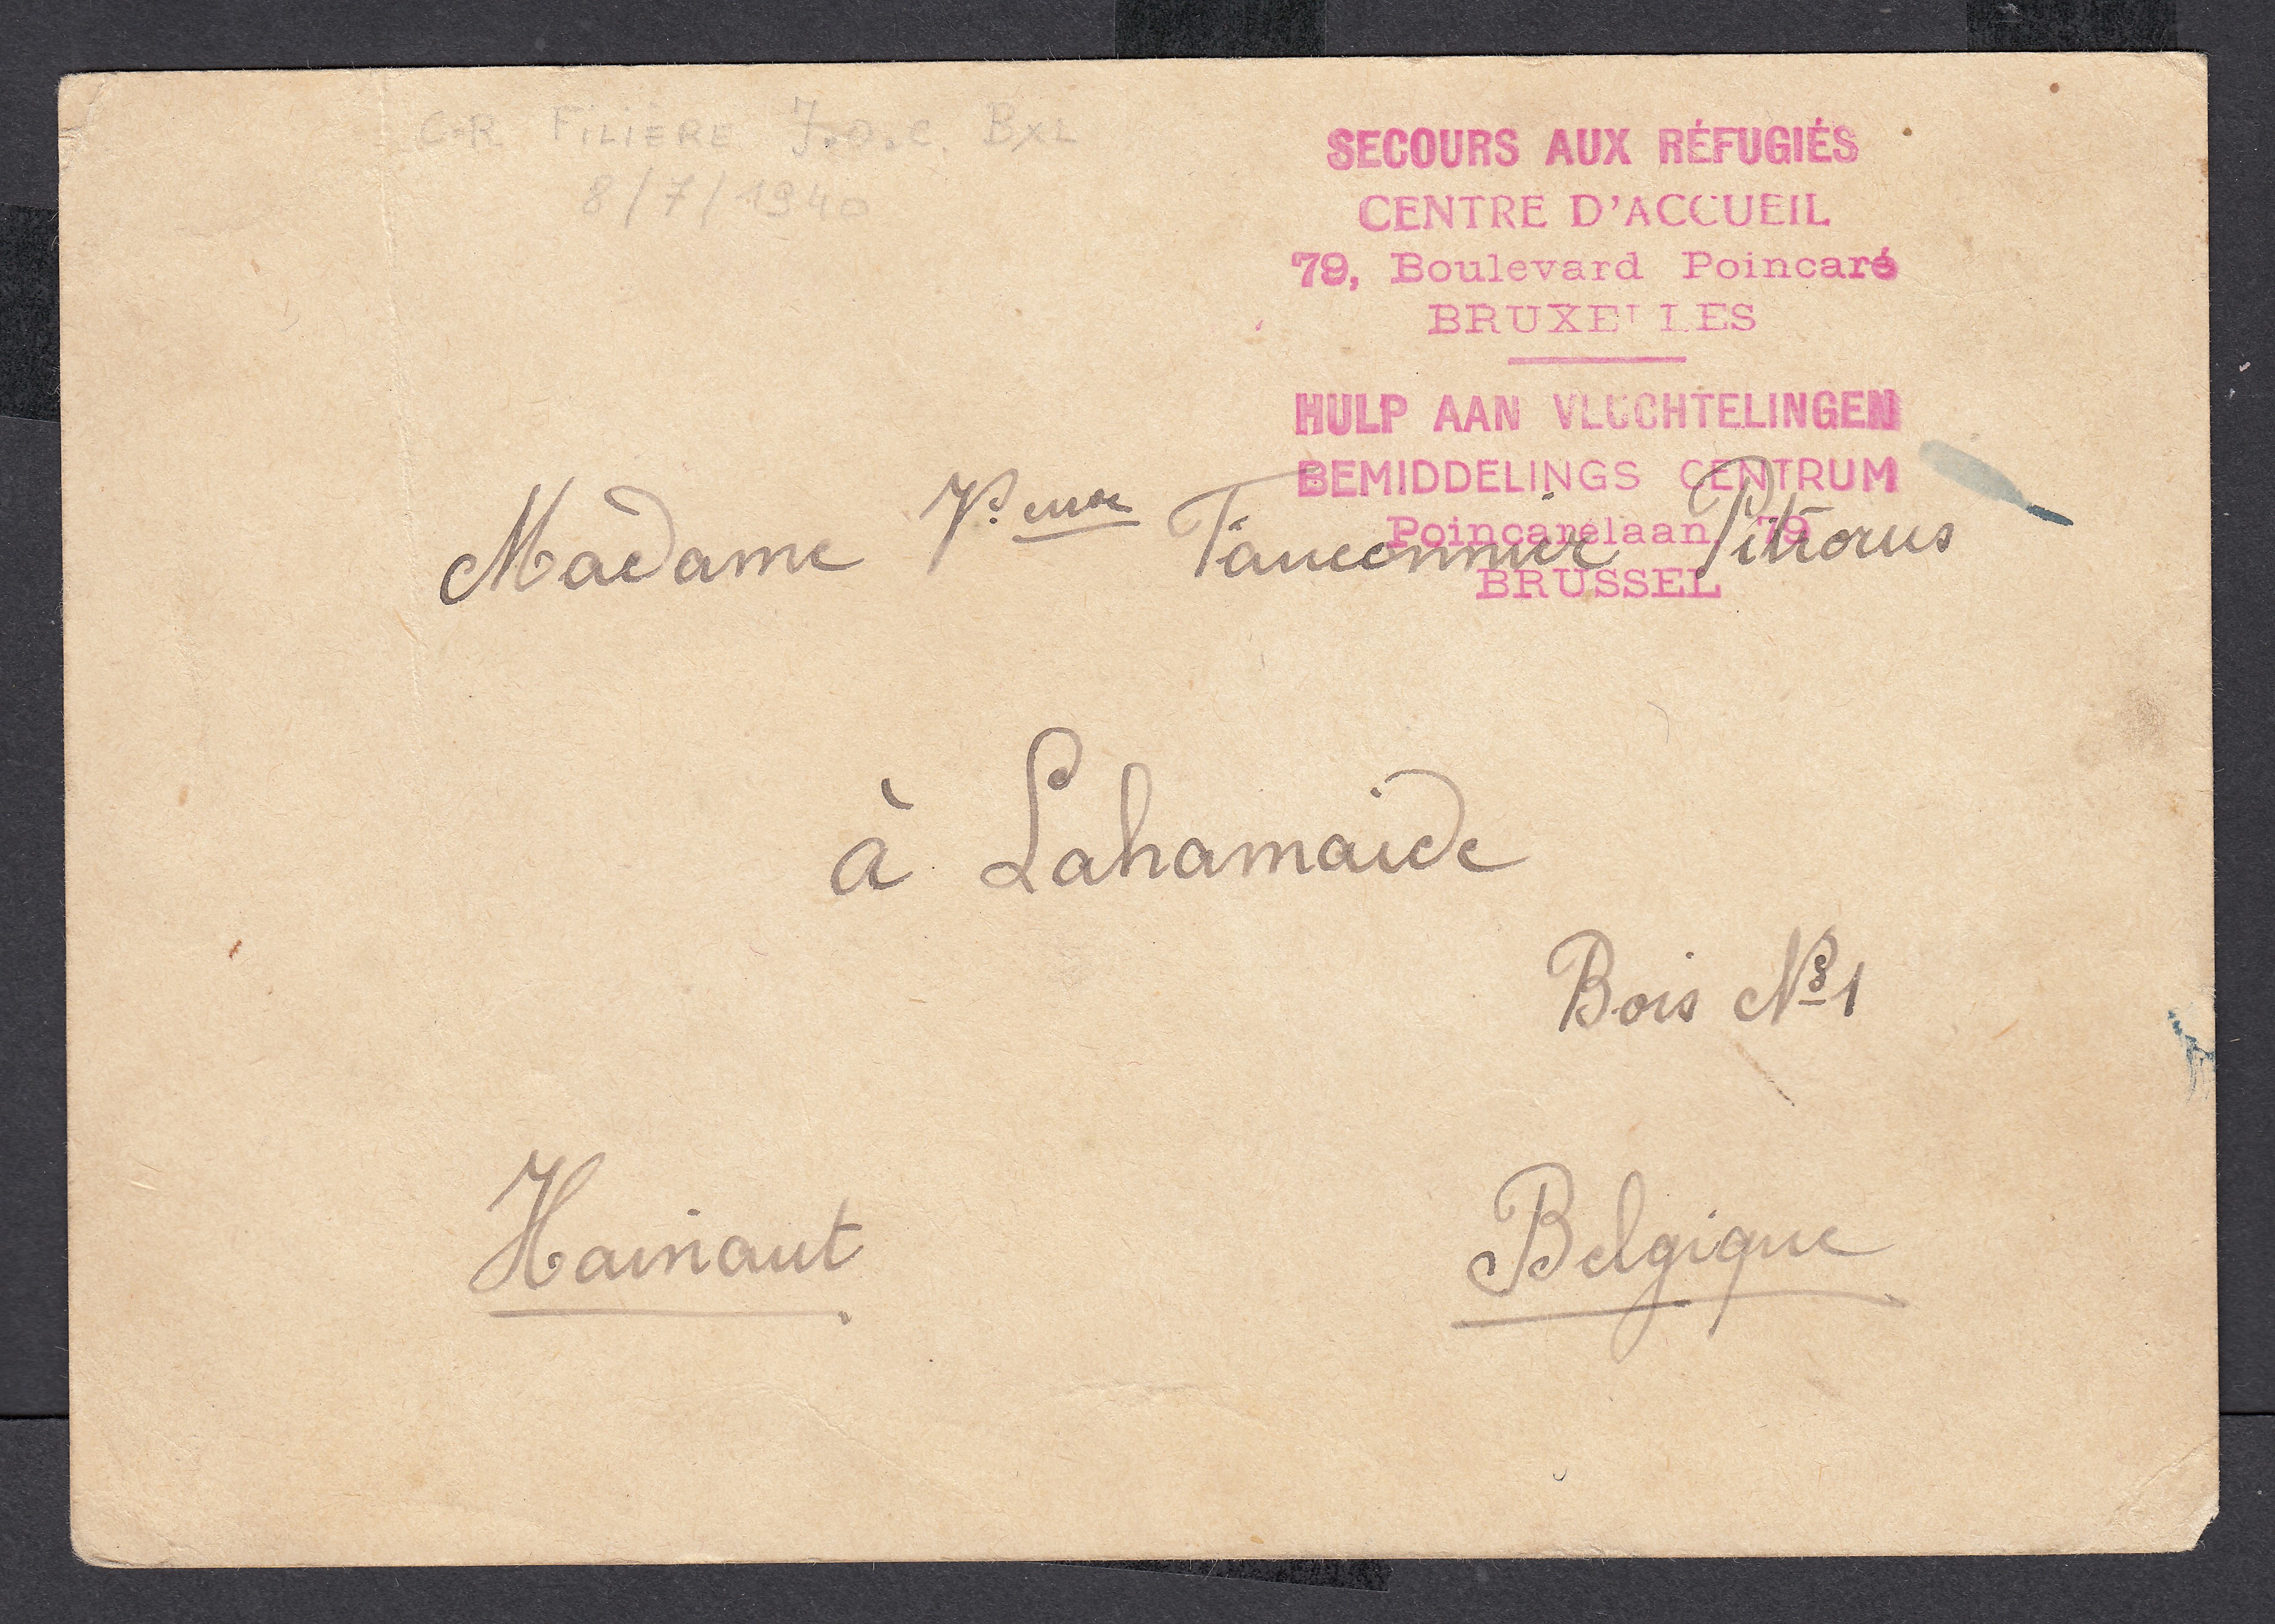 C.R FILIÈRE J.O.C. BXL
8/7/1940
SECOURS AUX RÉFUGIÉS
CENTRE D'ACCUEIL
79, Boulevard Poincaré
BRUXELLES
HULP AAN VLUCHTELINGEN
BEMIDDELINGS CENTRUM
Poincarélaan, 79
BRUSSEL
Madame Veuve Fauconnier
à Lahamaide
Bois No 1
Hainaut
Belgique